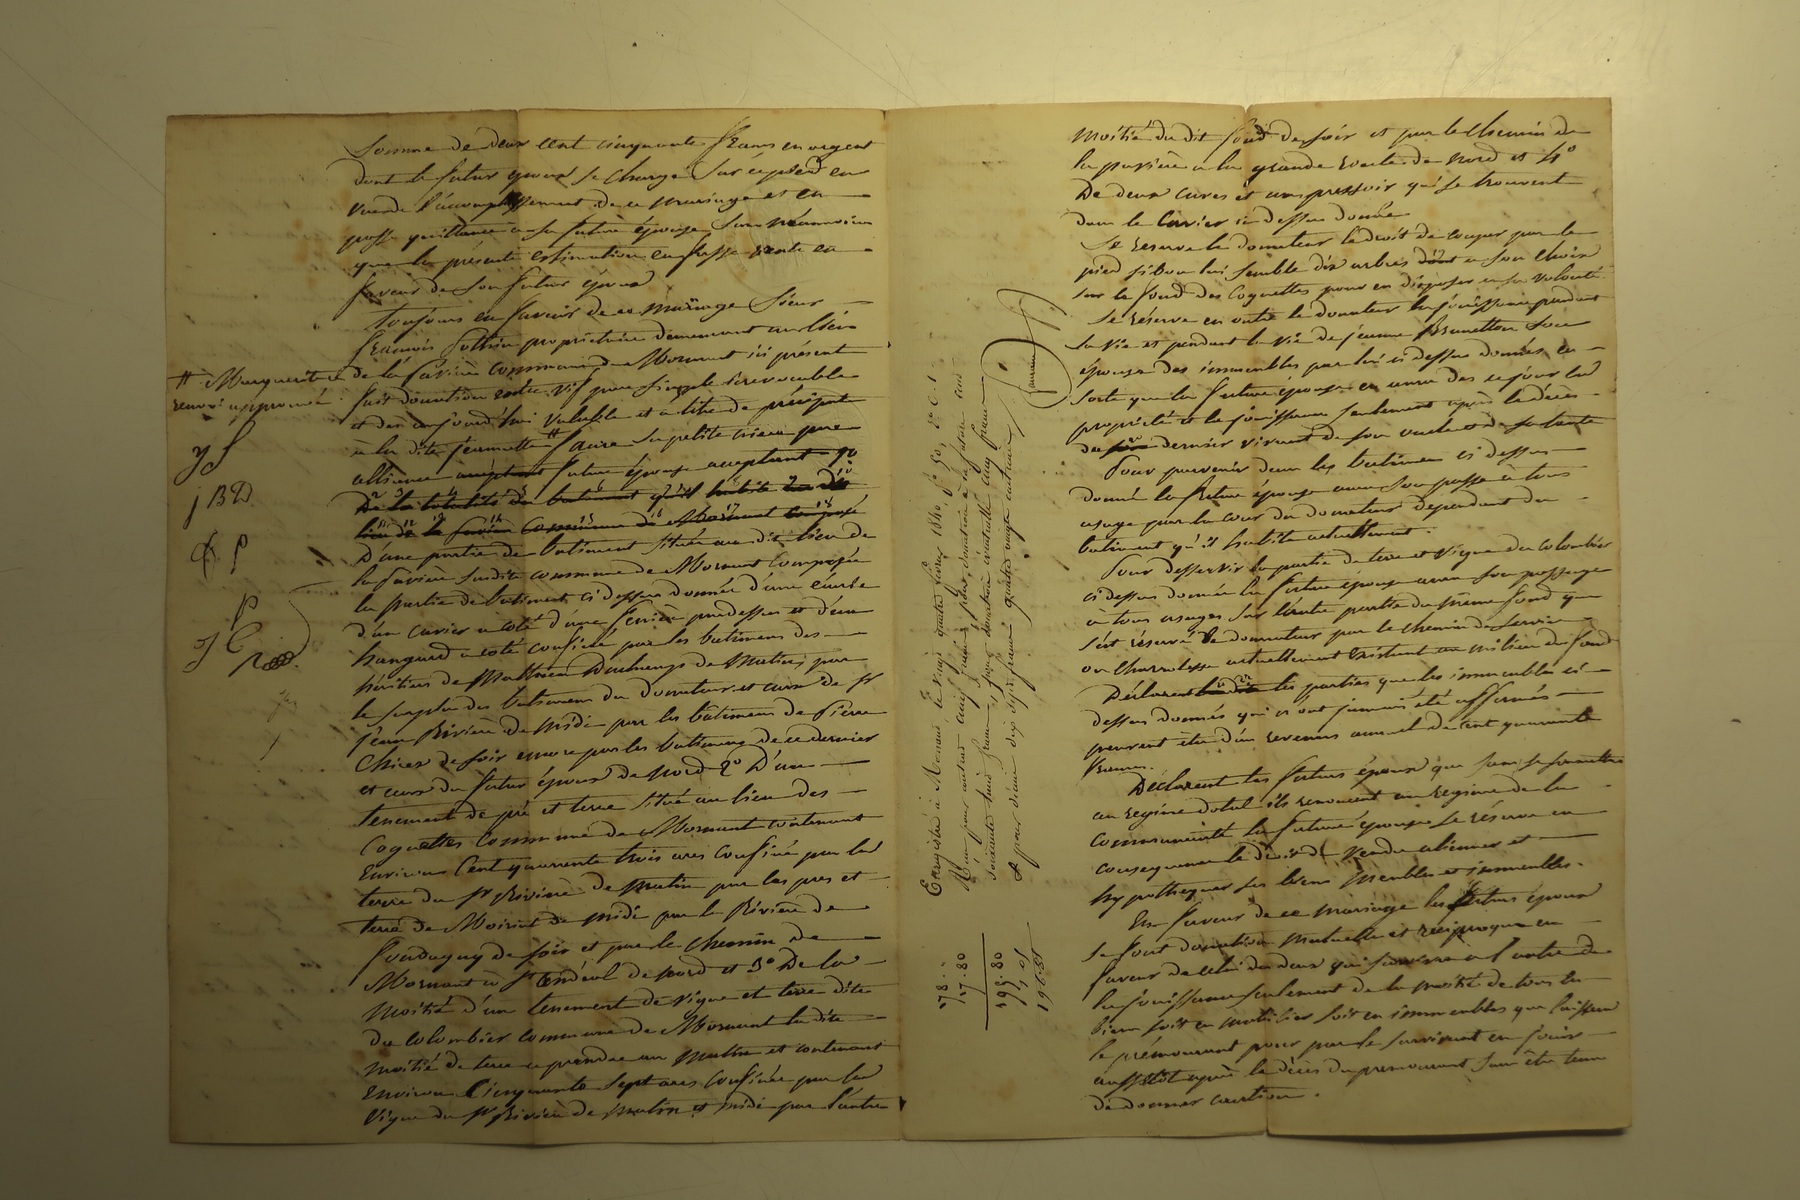 Somme de deux cent cinquante francs en argent
dont le futur époux se charge sur ce pied en
vue de l'accomplissement de ce mariage et en
passe quittance à sa future épouse sans néanmoins
que la présente estimation en fasse vente en
faveur de son futur époux
Toujours en faveur de ce mariage Sieur
François propriétaire demeurant au lieu
de la commune de Mornant ici présent
fait donation entre vifs pure simple irrévocable
et dès aujourd'hui valable et à titre de préciput
à la dite Jeannette # Faure sa petite nièce par
alliance future épouse acceptant
De la totalité du batiment qu'il habite au dit
lieu de la commune de Mornant composé
D'une partie de batiment située au dit lieu de
la susdite commune de Mornant composée
la partie de batiment ci dessus donnée d'une écurie
d'un cuvier à coté d'une fenière par dessus et d'un
hangard à coté confinée par les batimens des
héritiers de Mathieu de Matin par
le surplus des batimens du donateur et cour de Sr
Jean Rivière de Midi par les batimens de Pierre
de soir encore par les batimens de ce dernier
et cour du futur époux de Nord 2° D'un
tenement de pré et terre situé au lieu des
Coquettes commune de Mornant contenant
Environ Cent quarante trois ares confiné par la
terre du Sr Rivière de Matin par les prés et
terre de de Midi par la Rivière de
de soir et par le chemin de
Mornant à St Andéol de Nord et 3° De la
Moitié d'un tenement de vigne et terre dite
du Colombier commune de Mornant la dite
Moitié de terre à prendre au Matin et contenant
Environ Cinquante sept ares confinée par la
Vigne du Sr Rivière de Matin et Midi par l'autre
# Marguerite
renvoi approuvé
JF
JBD
P
P
J C
Moitié du dit fond de soir et par le Chemin de
la à la grande route de Nord et 4°
De deux cuves et un pressoir qui se trouvent
dans le Cuvier ci dessus donné
Se réserve le donateur le droit de couper par le
pied si bon lui semble dix arbres à son choix
sur le fond des Coquettes pour en disposer à sa volonté
Se réserve en outre le donateur la jouissance pendant
sa vie et pendant la vie de Jeanne son
épouse des immeubles par lui ci dessus donnés en
sorte que la future épouse en aura dès ce jour la
propriété et la jouissance seulement après le décès
du dernier vivant de son oncle et de sa tante
Pour parvenir dans les batimens ci dessus
donnés la future épouse aura son passage à tous
usages par la cour du donateur dépendant du
batiment qu'il habite actuellement.
Pour desservir la partie de terre et vigne du Colombier
ci dessus donnée la future épouse aura son passage
à tous usages sur l'autre partie du même fond que
s'est réservé le donateur par le chemin de service
ou Charretesse actuellement existant au milieu du fond
Déclarent les parties que les immeubles ci
dessus donnés qui n'ont jamais été affermés
peuvent être d'un revenu annuel de cent quarante
francs.
Déclarent les futurs époux que sans se soumettre
au régime dotal ils renoncent au régime de la
communauté la future épouse se réserve en
conséquence le droit de vendre aliéner et
hypothéquer ses biens Meubles et immeubles.
En faveur de ce mariage les futurs époux
se font donation mutuelle et réciproque en
faveur de celui des deux qui survivra à l'autre de
la jouissance seulement de la moitié de tous les
biens soit en mobilier soit en immeubles que laissera
le prémourant pour par le survivant en jouir
aussitôt après le décès du prémourant sans être tenu
de donner caution.
Enregistré à Mornant le vingt quatre février 1840,
Reçu pour contrat cinq francs, pour donation à la future cent
soixante huit francs, pour donation éventuelle cinq francs
& pour décime dix sept francs quatre vingt centimes
178 ..
17.80
195.80
1.05
196.85